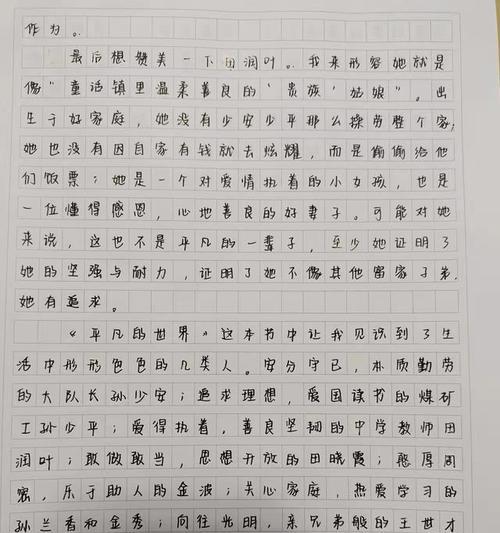 作为。
最后想赞美一下田润叶。我来形容她就是
像“童话镇里温柔善良的‘贵族’姑娘”。出
生于好家庭，她没有少安少平那么操劳整个家；
她也没有因自家有钱就去炫耀，而是偷偷给他
们饭票；她是一个对爱情执着的小女孩，也是
一位懂得感恩，心地善良的好妻子。可能对她
来说，这也不是平凡的一辈子，至少她证明了
她的坚强与耐力，证明了她不像其他富家子弟，
她有追求。
《平凡的世界》这本书中让我见识到了生
活中形形色色的几类人。安分守己，朴质勤劳
的大队长孙少安；追求理想，爱国读书的煤矿
工孙少平；爱得执着，善良坚韧的中学教师田
润叶；敢做敢当，思想开放的田晓霞；憨厚周
密，乐于助人的金波；关心家庭，热爱学习的
孙兰香和金秀；向往光明，亲兄弟般的王世才